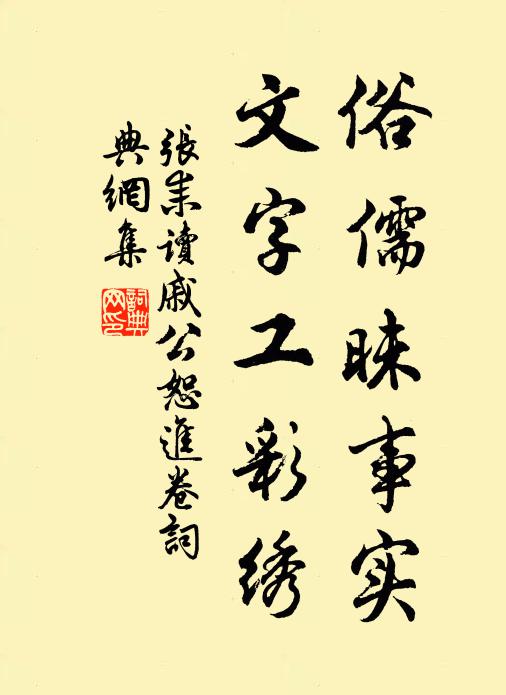 俗儒昧事实
文字工彩绣
張耒讀戚公恕進卷詞
典網集
詞典
网印